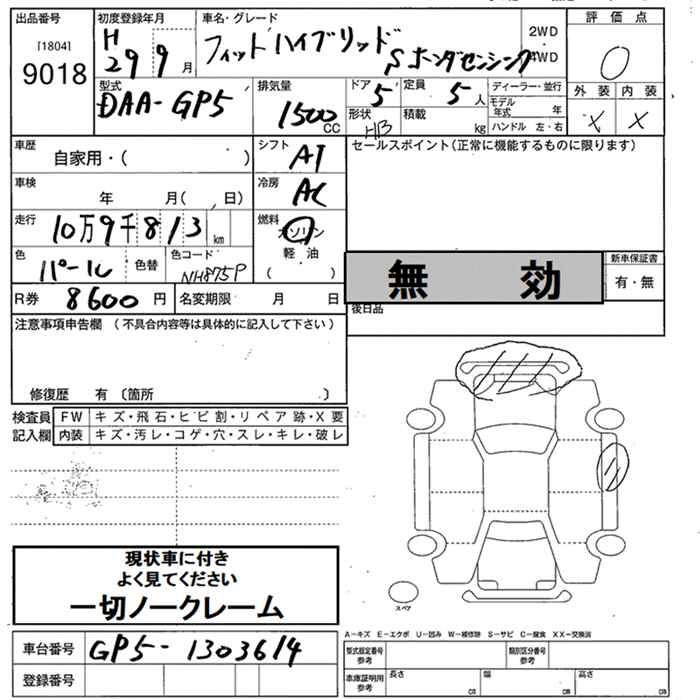 出品番号 初度登録年月 車名・グレード 評価点
[1804] 9018
H 29 9 月
フィットハイブリッド Sホンダセンシング
2WD
4WD
O
型式 排気量 ドア 定員 ディーラー・並行 外装 内装
DAA-GP5 1500 CC 5 5 人
モデル年式 年
X X
形状 積載
HB kg ハンドル 左・右
車歴 シフト セールスポイント(正常に機能するものに限ります)
自家用・( ) AT
車検 冷房
年 月( 、日) AC
走行 燃料
10万9千813 km ガソリン
色 色替 色コード 軽油
パール NH875P ( )
新車保証書
無効 有・無
R券 8600 円 名変期限 月 日 後日品
注意事項申告欄 (不具合内容等は具体的に記入して下さい)
修復歴 有 〔箇所 〕
検査員 FW キズ・飛石・ヒビ割・リペア跡・X要
記入欄 内装 キズ・汚レ・コゲ・穴・スレ・キレ・破レ
現状車に付き
よく見てください
一切ノークレーム
スペア
車台番号 GP5-1303614
登録番号
A-キズ E-エクボ U-凹み W-補修跡 S-サビ C-腐食 XX-交換済
型式指定番号 参考 類別区分番号 参考
車庫証明用 参考 長さ cm 幅 cm 高さ cm